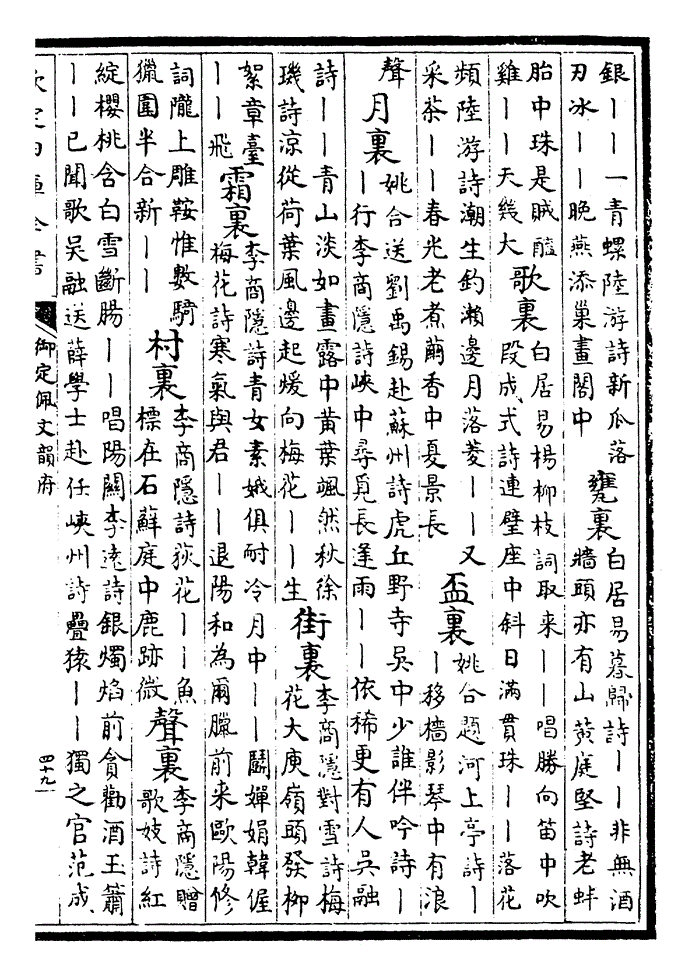 銀——一青螺陸游詩新瓜落
刃冰——晚燕添巢畫閣中
甕裏
白居易暮歸詩——非無酒
牆頭亦有山黄庭堅詩老蚌
胎中珠是賊醯
雞——天幾大
歌裏
白居易楊柳枝詞取来——唱勝向笛中吹
段成式詩連璧座中斜日滿貫珠——落花
頻陸游詩潮生釣瀨邊月落菱——又
采茶——春光老煮繭香中夏景長
盃裏
姚合題河上亭詩—
—移檣影琴中有浪
聲
月裏
姚合送劉禹錫赴蘇州詩虎丘野寺吳中少誰伴吟詩—
—行李商隱詩峽中尋覓長逢雨——依稀更有人吳融
詩——青山淡如畫露中黄葉颯然秋徐
璣詩涼從荷葉風邊起煖向梅花——生
街裏
李商隱對雪詩梅
花大庾嶺頭發柳
絮章臺
——飛
霜裏
李商隱詩青女素娥俱耐冷月中——鬭嬋娟韓偓
梅花詩寒氣與君——退陽和為爾臘前来歐陽修
詞隴上雕鞍惟數騎
獵圍半合新——
村裏
李商隱詩荻花——魚
標在石蘚庭中鹿跡微
聲裏
李商隱贈
歌妓詩紅
綻櫻桃含白雪斷腸——唱陽關李遠詩銀燭焰前貪勸酒王簫
——已聞歌吳融送薛學士赴任峽州詩疊猿——獨之官范成
欽定四庫全書
御定佩文韻府
四十九